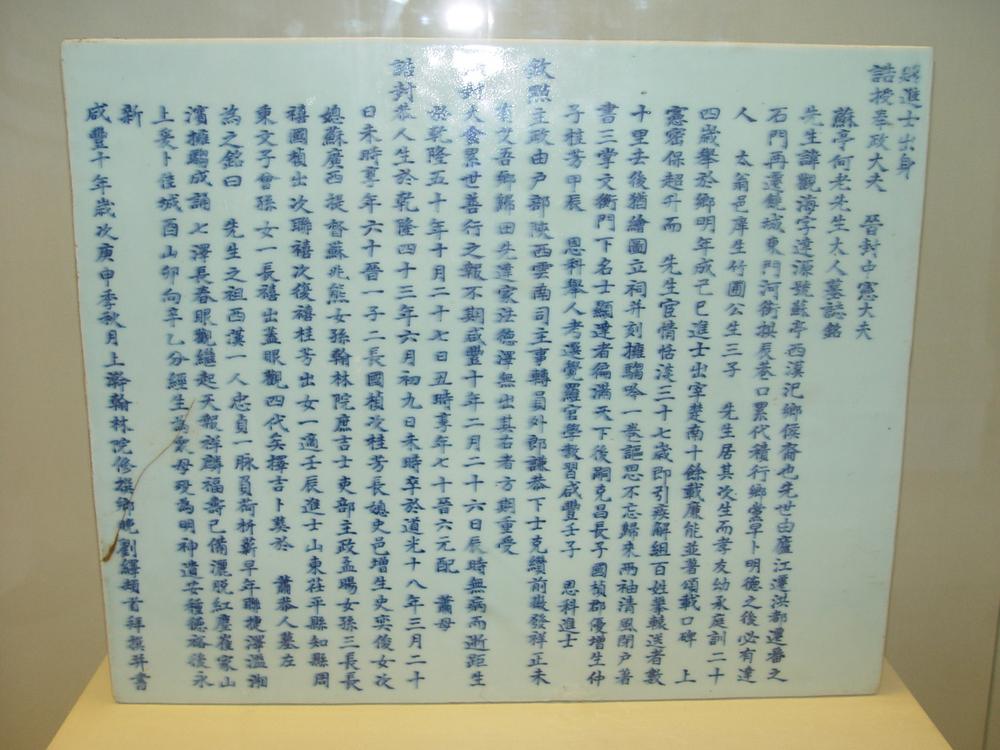 賜進士出身
誥授奉政大夫 晉封中憲大夫
蘇亭何老先生大人墓誌銘
先生諱觀海字達源號蘇亭西漢汜鄉侯裔也先世由廬江遷洪都還番之
石門再遷饒城東門河街撰長巷口累代積行鄉黨早卜明德之後必有達
人 太翁邑庠生竹圃公生三子 先生居其次生而孝友幼承庭訓二十
四歲舉於鄉明年成己巳進士出宰楚南十餘載廉能並著頌載口碑 上
憲密保超升而 先生宦情恬淡三十七歲即引疾解組百姓攀轅送者數
十里去後猶繪圖立祠并刻擁騶吟一卷謳思不忘歸來兩袖清風閉戶著
書三掌文衡門下名士顯達者徧滿天下後嗣克昌長子國楨郡優增生仲
子桂芳甲辰 恩科舉人考選覺羅官學教習咸豐壬子 恩科進士
欽點主政由戶部陝西雲南司主事轉員外郎謙恭下士克纘前徽發祥正未
有艾吾鄉歸田先達蒙汪德澤無出其右者方期重受
封大會累世善行之報不期咸豐十年二月二十六日辰時無病而逝距生
於乾隆五十年十月二十七日丑時享年七十晉六元配 蕭母
誥封恭人生於乾隆四十三年六月初九日未時卒於道光十八年三月二十
日未時享年六十晉一子二長國楨次桂芳長媳史邑增生史奕俊女次
媳蘇廣西提督蘇兆熊女孫翰林院庶吉士吏部主政孟賜女孫三長長
禧國楨出次聯禧次復禧桂芳出女一適壬辰進士山東茌平縣知縣周
東文子曾孫女一長禧出蓋眼觀四代矣擇吉卜墓於 蕭恭人墓左
為之銘曰 先生之祖西漢一人忠貞一脉員荷析薪早年聯捷澤溢湘
濱擁騶成誦七澤長春眼觀繼起天報祥麟福壽已備灑脫紅塵崔家山
上爰卜佳城酉山卯向辛乙分經生為眾母歿為明神遺安種德裕後永
新
咸豐十年歲次庚申季秋月上澣翰林院修撰鄉晚劉繹頓首拜撰并書